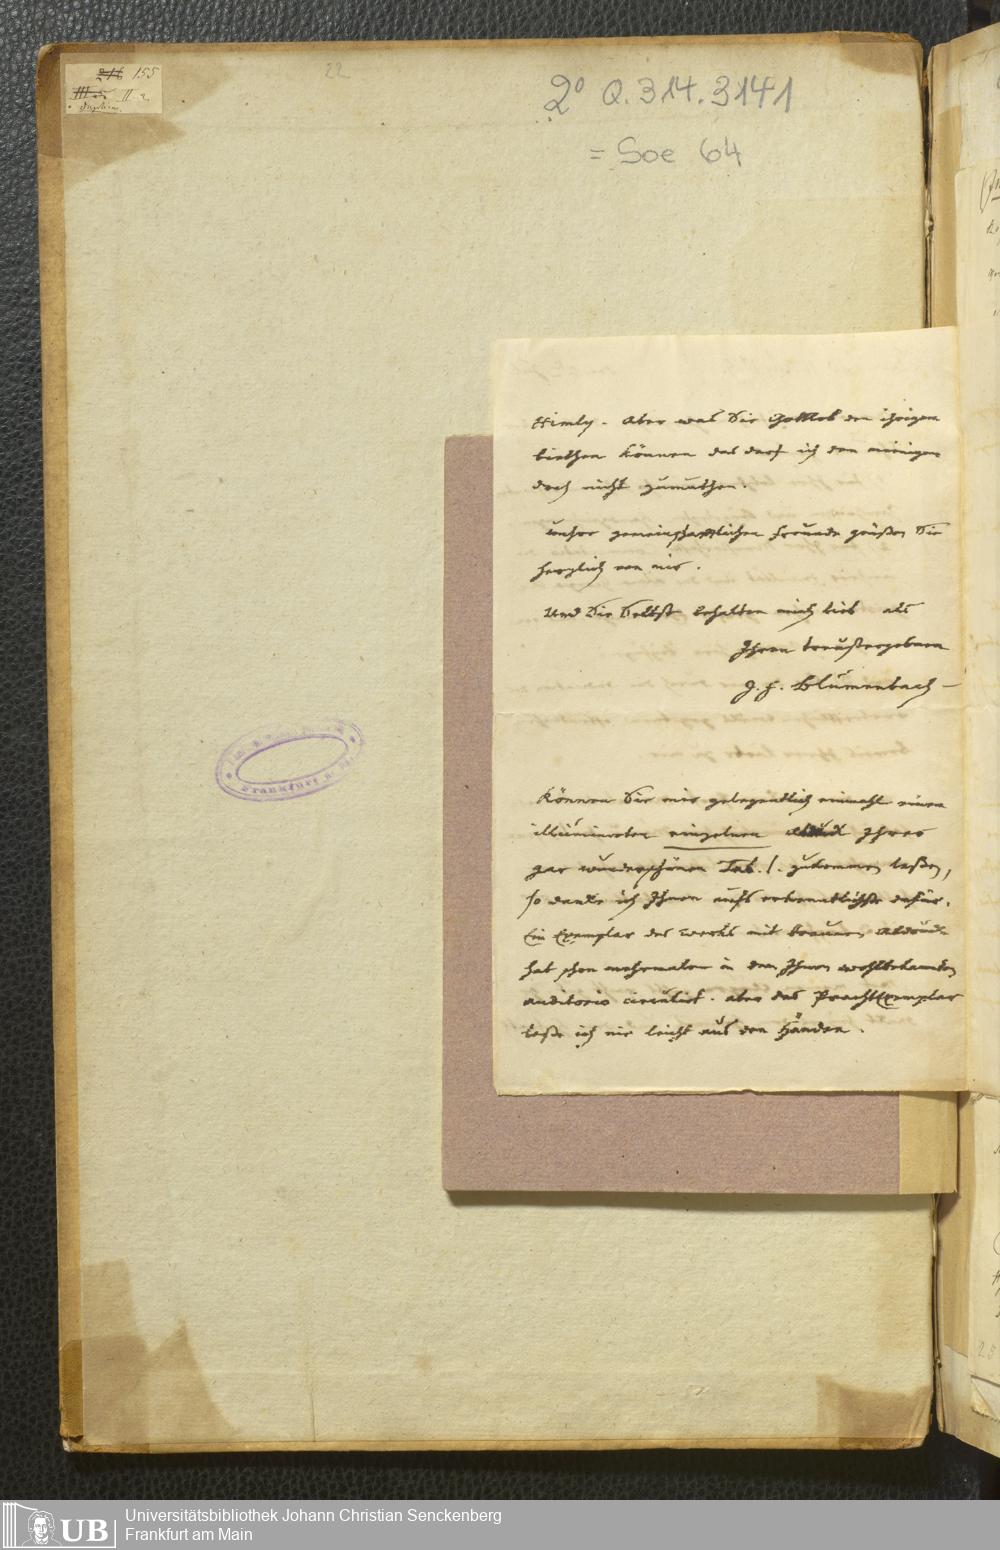 216 155
III 25 II. 2
Duplicum.
22
2° Q. 314. 3141
= Soe 64
Himly. Aber was Sie Gottlob den ihrigen
biethen können das darf ich den meinigen
doch nicht zumuthen.
Unsre gemeinschaftlichen Freunde grüßen Sie
herzlich von mir.
Und Sie Selbst behalten mich lieb als
Ihren treustergebnen
J. F. Blumenbach
Können Sie mir gelegendlich einmahl einen
illuminirten einzelnen Abdruck Ihrer
gar wunderschönen Tab. I. zukommen laßen,
so danke ich Ihnen aufs erkenntlichste dafür.
Ein Exemplar des Werks mit braunem Abdruck
hat schon mehrmalen in dem Ihnen wohlbekannten
auditorio circulirt. aber das PrachtExemplar
laße ich nie leicht aus den Händen.
Frankfurt a. M.
UB
Universitätsbibliothek Johann Christian Senckenberg
Frankfurt am Main